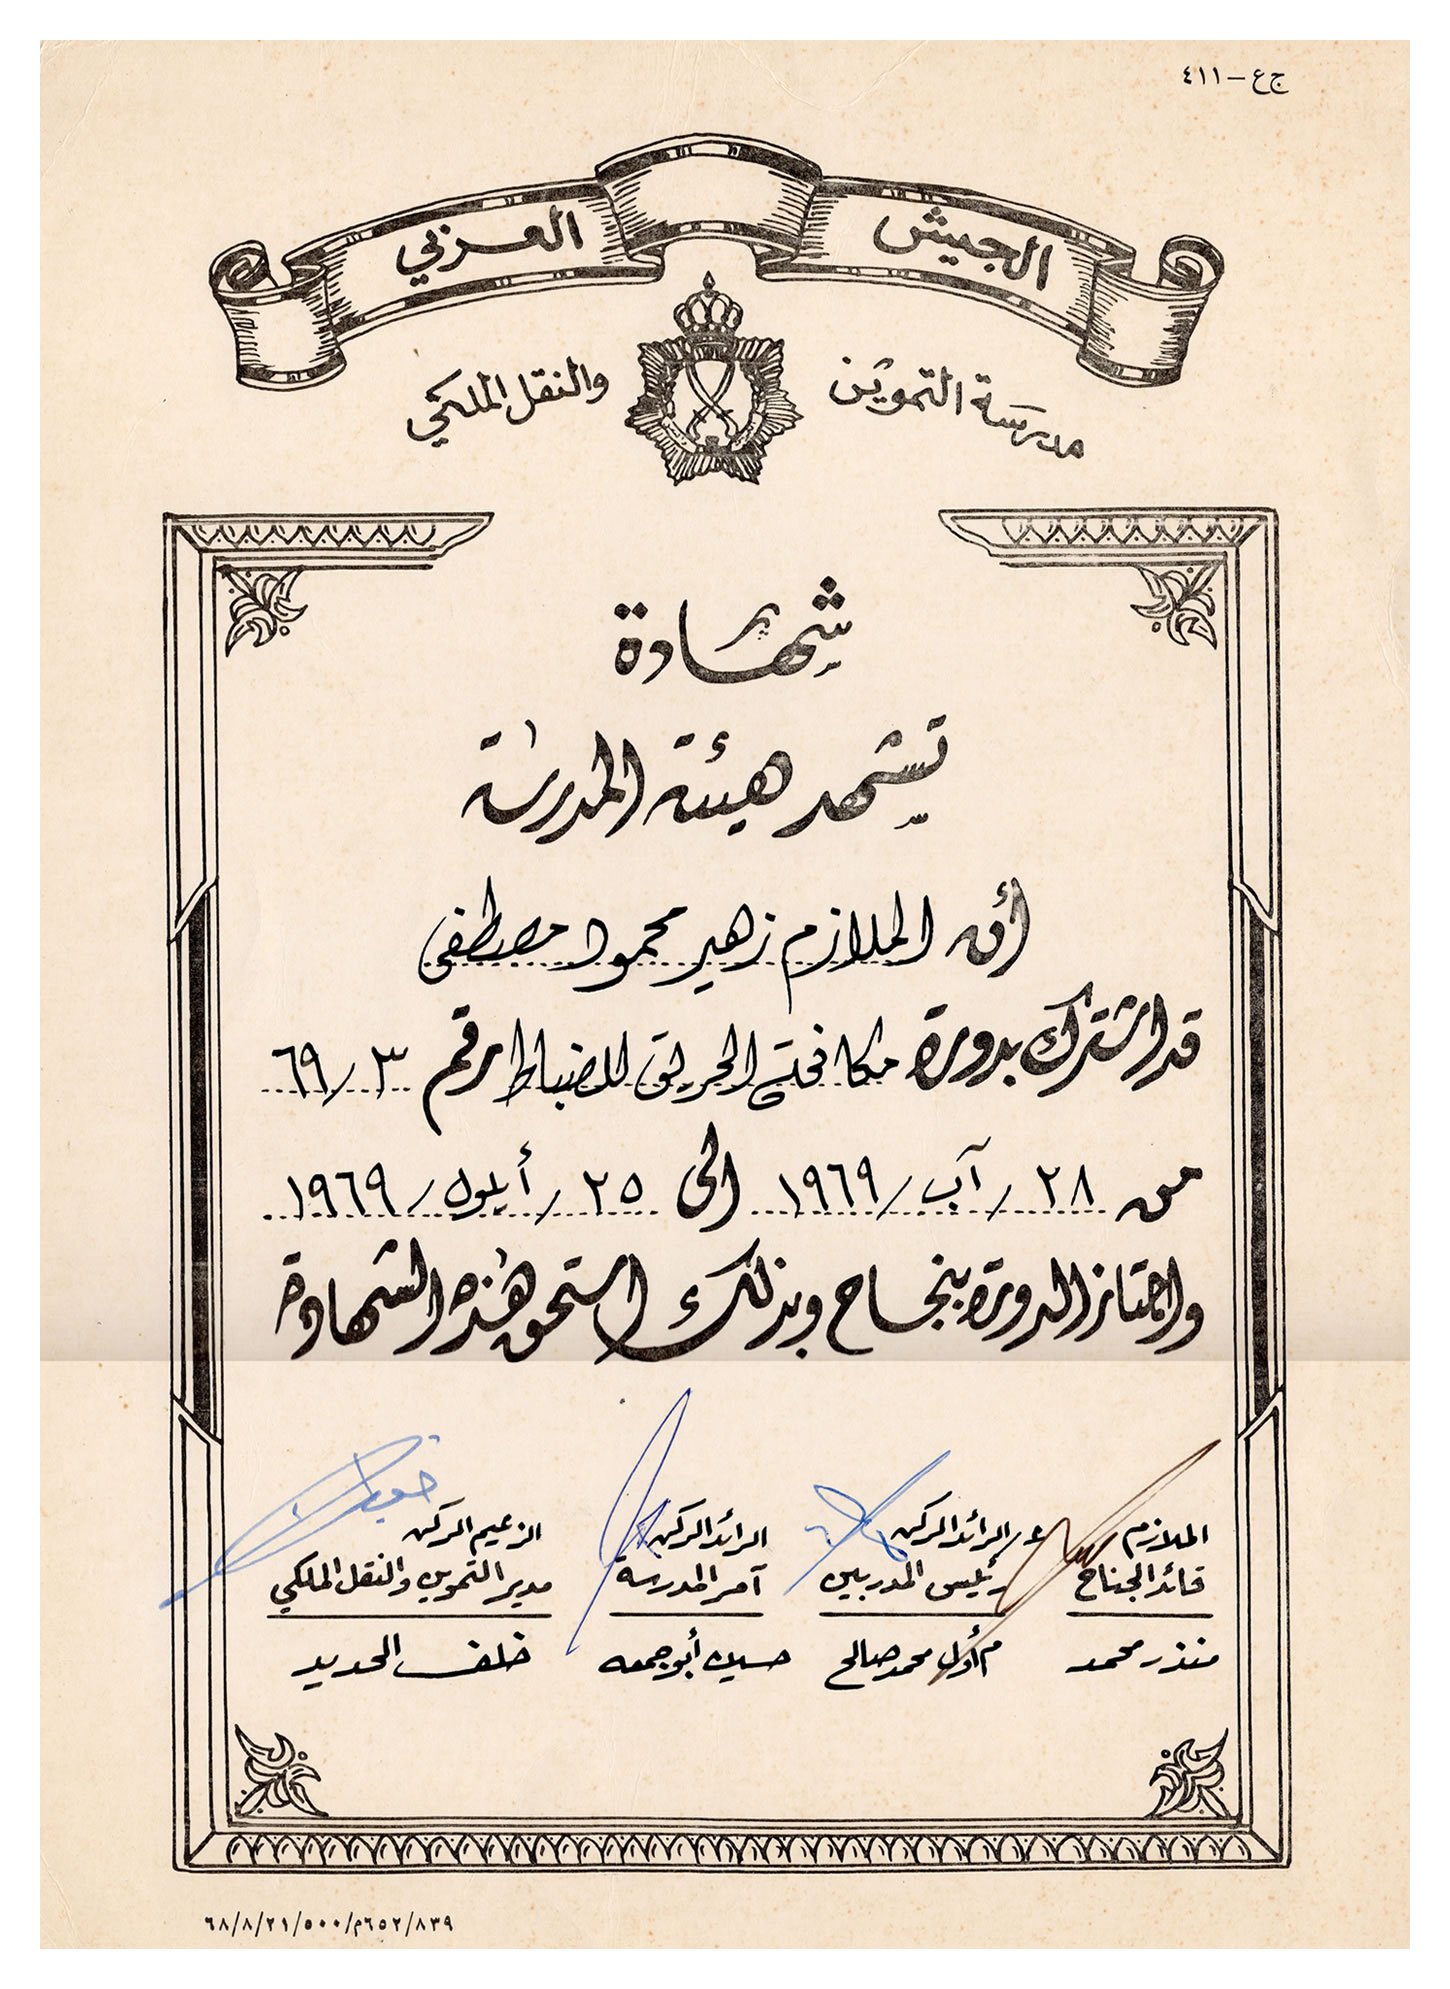 ج ع - ٤١١
الجيش العربي
مدرسة التموين والنقل الملكي
شهادة
تشهد هيئة المدرسة
أن الملازم زهير محمود مصطفى
قد اشترك بدورة مكافحة الحريق للضباط رقم ٣/٦٩
من ٢٨/آب/١٩٦٩ الى ٢٥/أيلول/١٩٦٩
واجتاز الدورة بنجاح وبذلك استحق هذه الشهادة
الملازم
قائد الجناح
منذر محمد
ع/الرائد الركن
رئيس المدربين
م أول محمد صالح
الرائد الركن
آمر المدرسة
حسين أبو جمعه
الزعيم الركن
مدير التموين والنقل الملكي
خلف الحديد
٦٨/٨/٢١/٥٠٠م/٦٥٢/٨٣٩